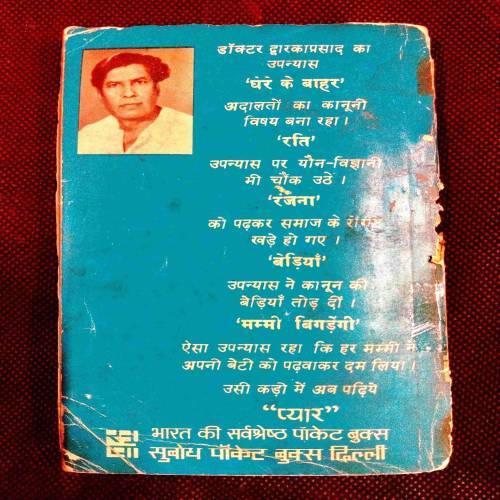 डॉक्टर द्वारकाप्रसाद का
उपन्यास
'घेरे के बाहर'
अदालतों का कानूनी
विषय बना रहा।
'रति'
उपन्यास पर यौन-विज्ञानी
भी चौंक उठे।
'रंजना'
को पढ़कर समाज के
खड़े हो गए।
'बेड़ियाँ'
उपन्यास ने कानून की
बेड़ियाँ तोड़ दीं।
'मम्मी बिगड़ेंगी'
ऐसा उपन्यास रहा कि हर मम्मी ने
अपनी बेटी को पढ़वाकर दम लिया।
उसी कड़ी में अब पढ़िये
"प्यार"
भारत की सर्वश्रेष्ठ पॉकेट बुक्स
सुबोध पॉकेट बुक्स दिल्ली